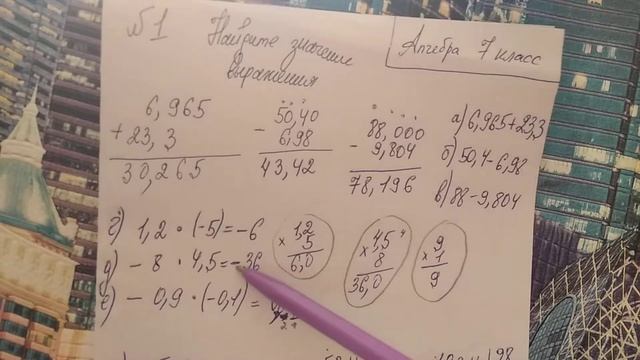 №1 Найдите значение
выражения
Алгебра 7 класс
6,965
+ 23,3
30,265
50,40
- 6,98
43,42
88,000
- 9,804
78,196
а) 6,965+23,3
б) 50,4-6,98
в) 88-9,804
г) 1,2 · (-5) = -6
1,2
× 5
6,0
д) - 8 · 4,5 = -36
4,5 4
× 8
36,0
9
× 1
9
е) - 0,9 · (-0,1) =